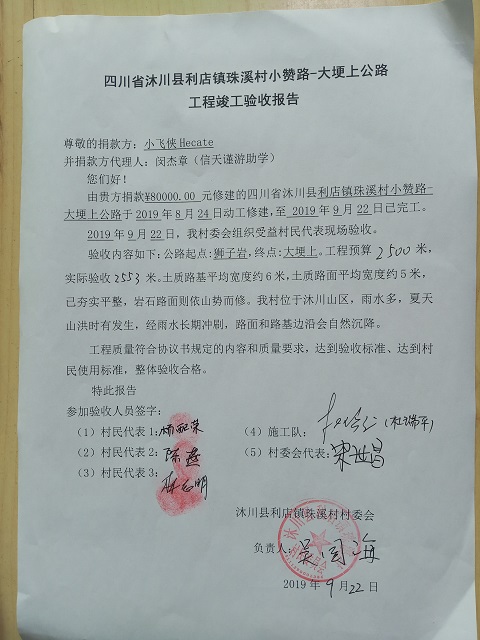 四川省沐川县利店镇珠溪村小赞路-大埂上公路
工程竣工验收报告
尊敬的捐款方：小飞侠Hecate
并捐款方代理人：闵杰章（信天谨游助学）
您们好！
由贵方捐款¥80000.00元修建的四川省沐川县利店镇珠溪村小赞路-
大埂上公路于2019年8月24日动工修建，至 2019年9月22日已完工。
2019年9月22日，我村委会组织受益村民代表现场验收。
验收内容如下：公路起点：狮子岩，终点：大埂上。工程预算 2500 米，
实际验收2553米。土质路基平均宽度约6米，土质路面平均宽度约5米，
已夯实平整，岩石路面则依山势而修。我村位于沐川山区，雨水多，夏天
山洪时有发生，经雨水长期冲刷，路面和路基边沿会自然沉降。
工程质量符合协议书规定的内容和质量要求，达到验收标准、达到村
民使用标准，整体验收合格。
特此报告
参加验收人员签字：
（1）村民代表1：
（4）施工队：
（2）村民代表2：陈
（5）村委会代表：宋世昌
（3）村民代表3：
沐川县利店镇珠溪村村委会
负责人：吴周海
2019年 9月22日